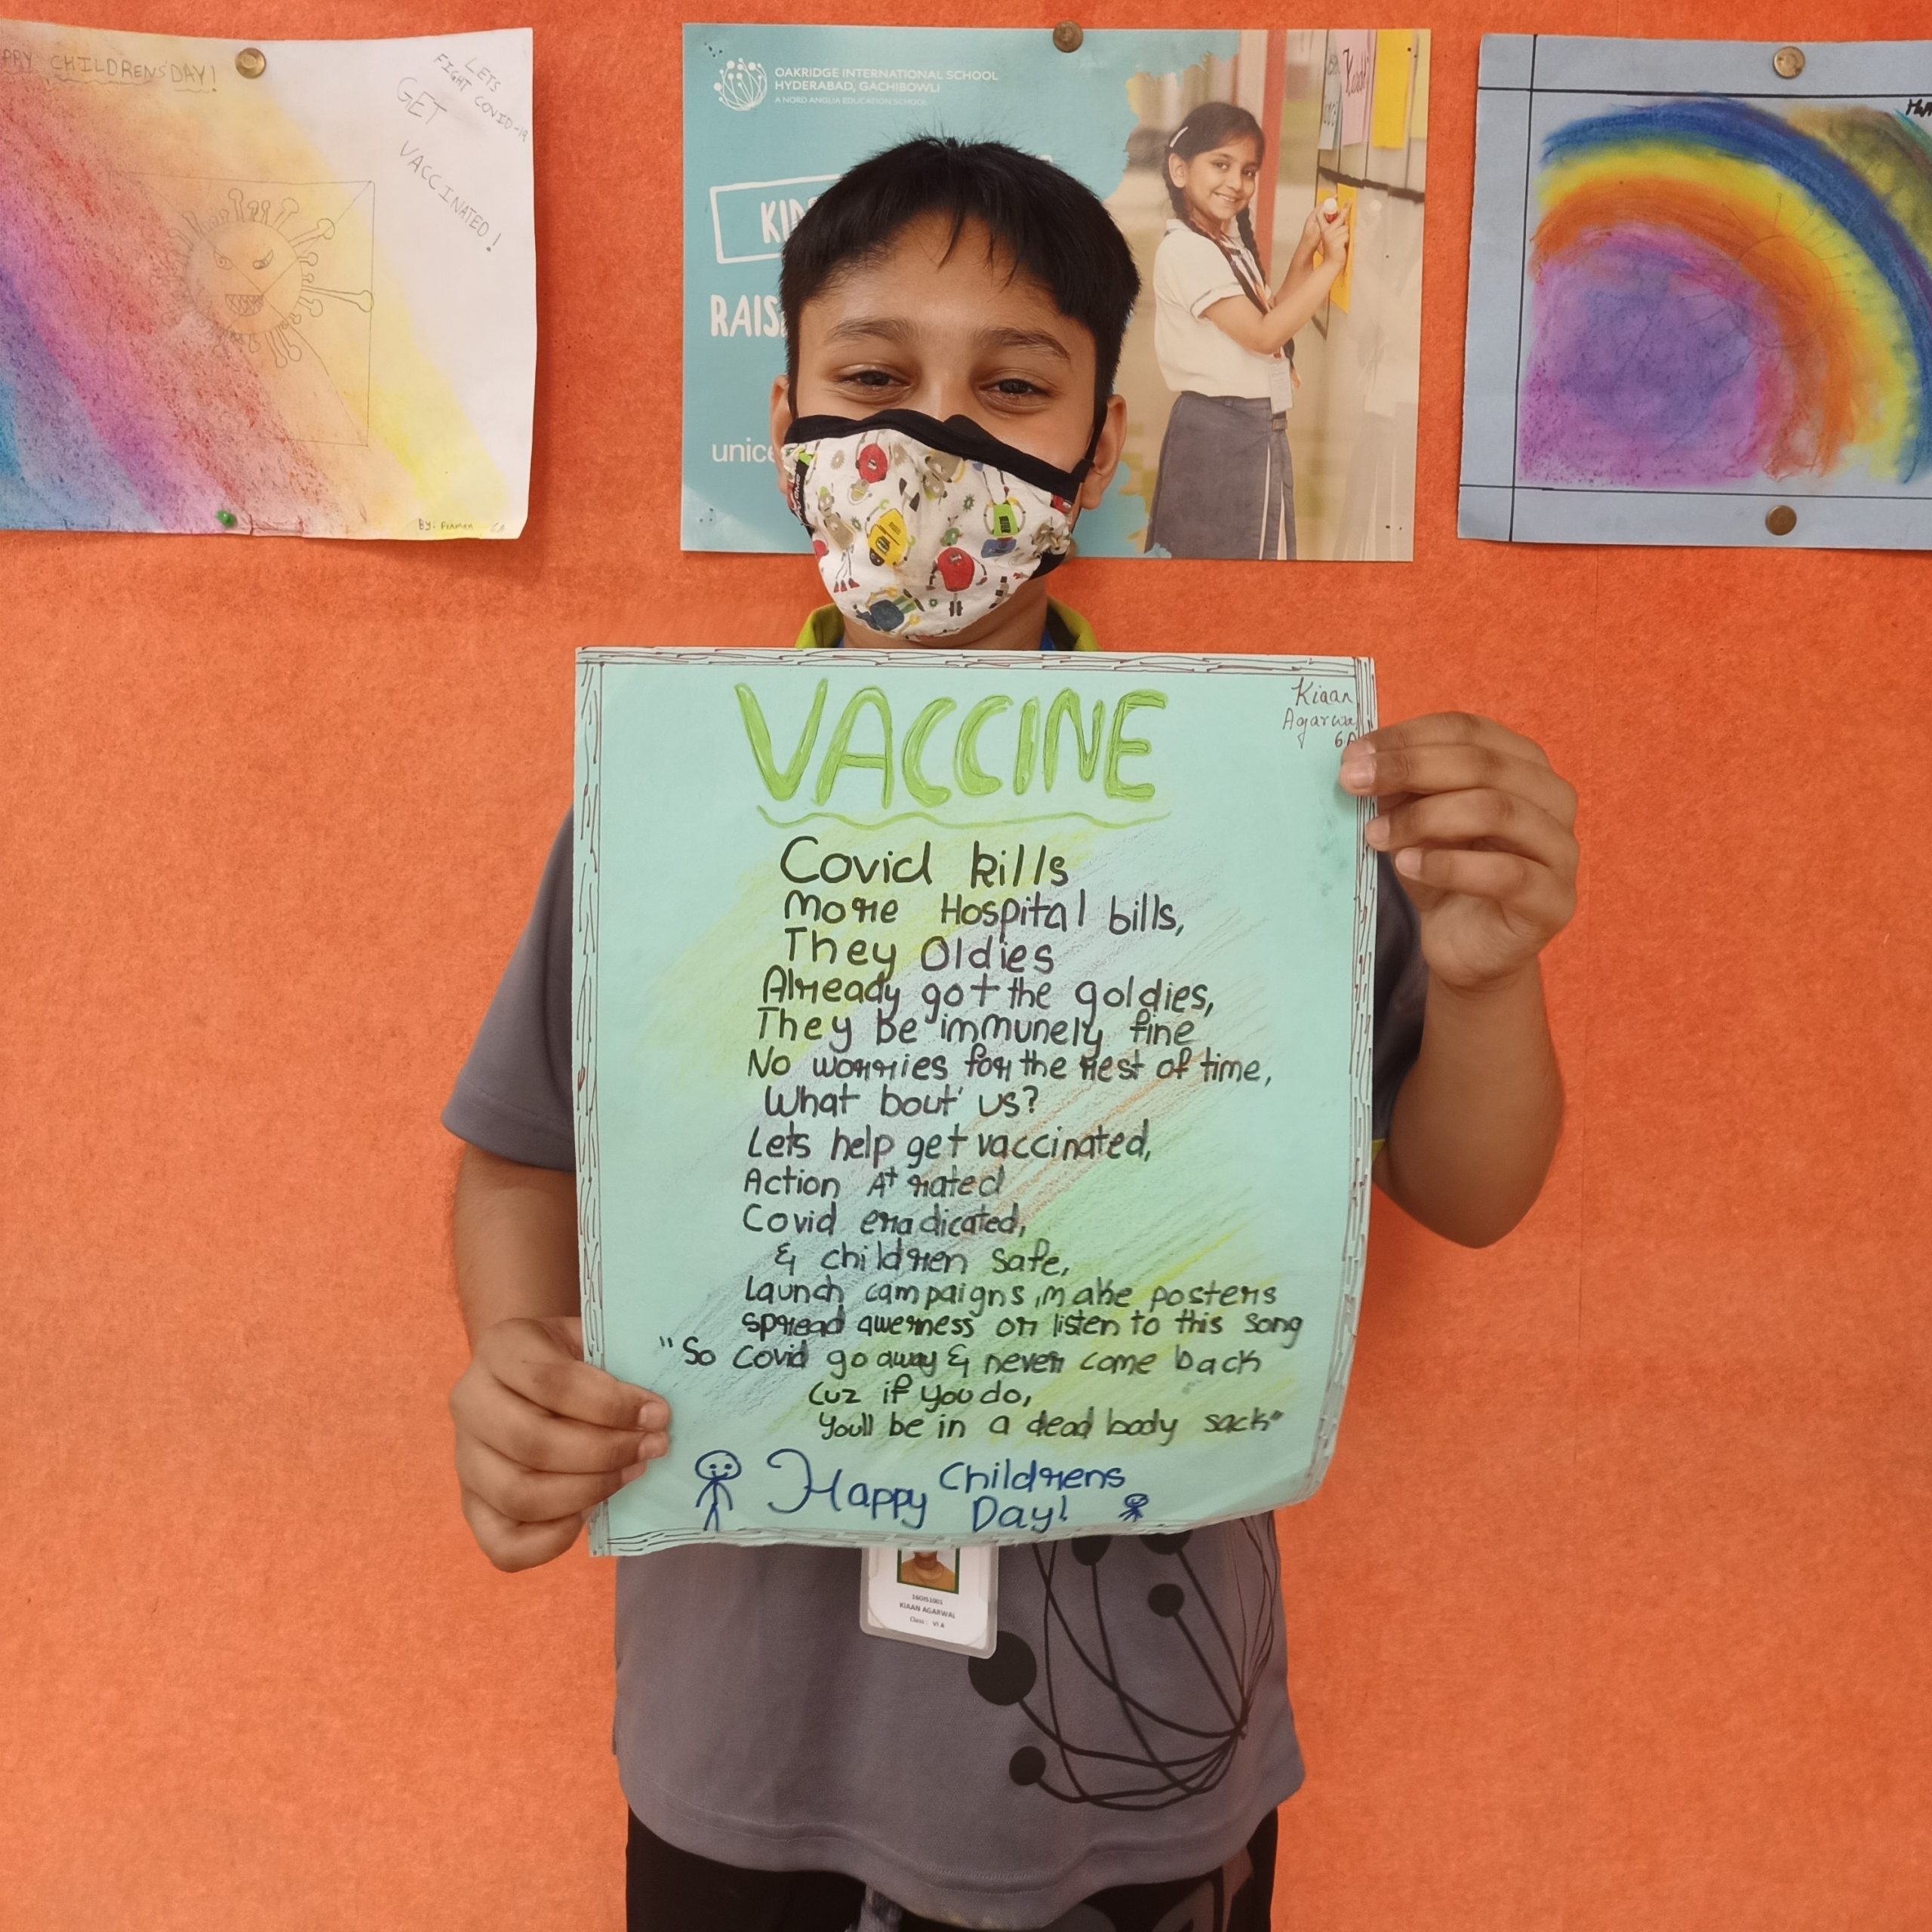 CHILDRENS DAY!
LETS
FIGHT COVID-19
GET
VACCINATED!
OAKRIDGE INTERNATIONAL SCHOOL
HYDERABAD, GACHIBOWLI
A NORD ANGLIA EDUCATION SCHOOL
VACCINE
Kiaan
6A
Covid kills
More Hospital bills,
They Oldies
Already got the goldies,
They be immunely fine
No worries for the rest of time,
What bout' us?
Lets help get vaccinated,
Action At rated
Covid eradicated,
& children safe,
Launch campaigns, make posters
spread awerness or listen to this song
"So Covid go away & never come back
Cuz if you do,
Youll be in a dead body sack"
Happy Childrens
Day!
KIAAN AGARWAL
Class : VI A